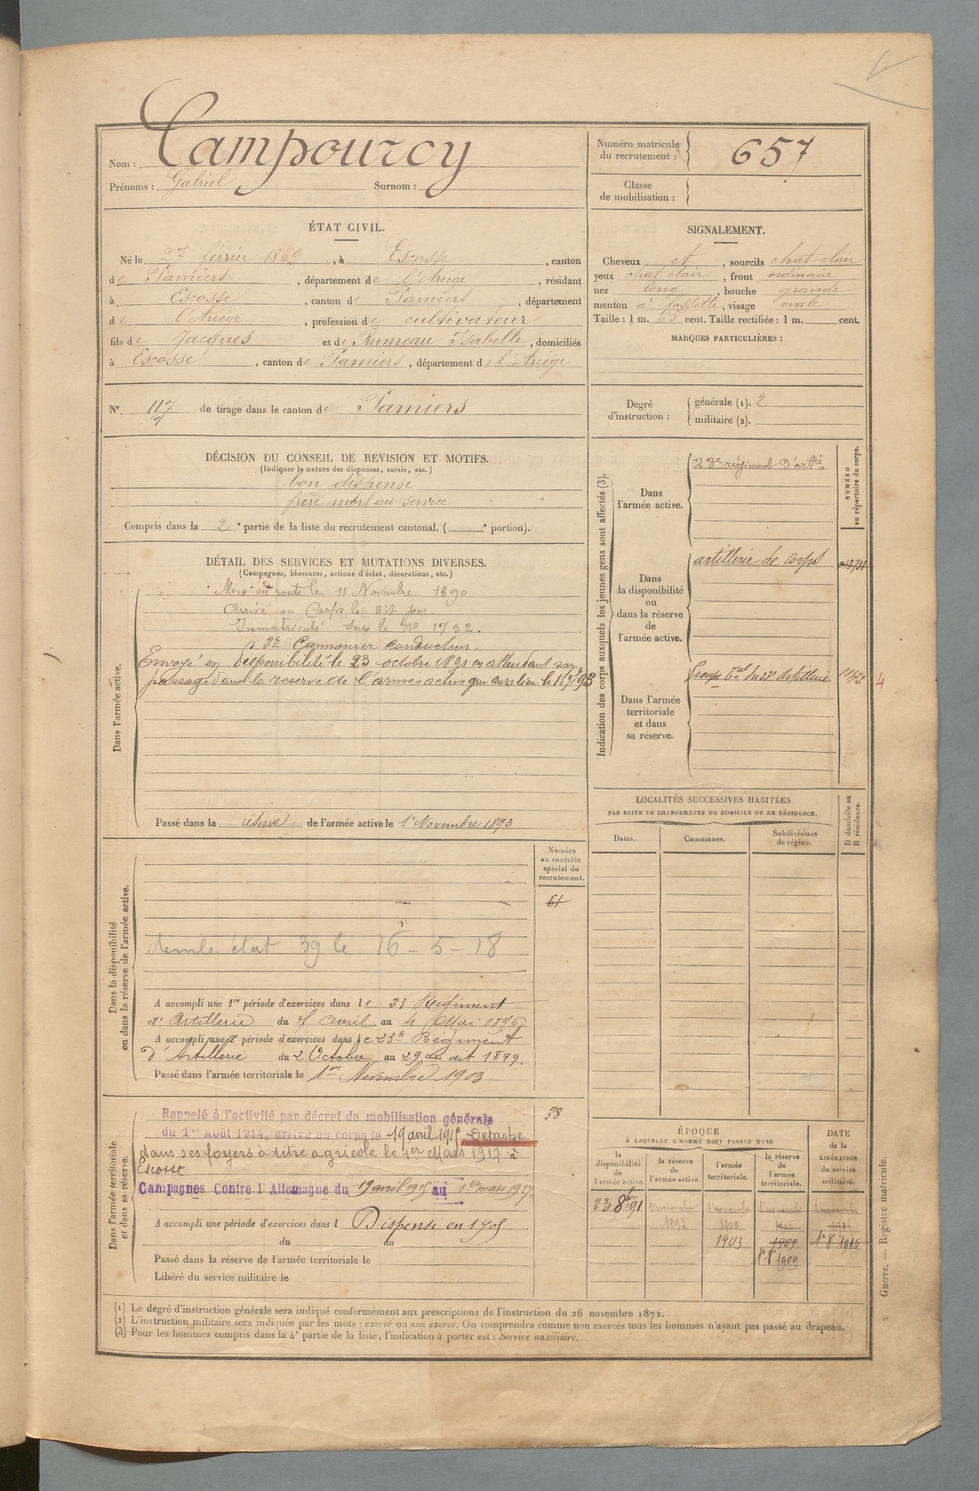 Nom : Campourcy
Prénoms : Gabriel Surnom :
Numéro matricule du recrutement : 657
Classe de mobilisation :
ÉTAT CIVIL.
Né le 27 février 1869, à Escosse, canton
de Pamiers, département de l'Ariège, résidant
à Escosse, canton de Pamiers, département
de l'Ariège, profession de cultivateur
fils de Jacques et de Rumeau Isabelle, domiciliés
à Escosse, canton de Pamiers, département de l'Ariège
N° 117 de tirage dans le canton de Pamiers
SIGNALEMENT.
Cheveux et, sourcils chat. clair
yeux chat. clair, front ordinaire
nez long, bouche grande
menton à fossette, visage ovale
Taille : 1 m. 65 cent. Taille rectifiée : 1 m. cent.
MARQUES PARTICULIÈRES :
Degré d'instruction : générale (1). 2
militaire (2).
DÉCISION DU CONSEIL DE REVISION ET MOTIFS.
(Indiquer la nature des dispenses, sursis, etc.)
bon dispense
frère mort au service
Compris dans la 2e partie de la liste du recrutement cantonal. ( e portion).
DÉTAIL DES SERVICES ET MUTATIONS DIVERSES.
(Campagnes, blessures, actions d'éclat, décorations, etc.)
Dans l'armée active.
Mis en route le 11 Novembre 1890
Arrivé au Corps le dit jour.
Immatriculé sous le no 1732.
2e Cannonier conducteur.
Envoyé en disponibilité le 23 octobre 1891 en attendant son
passage dans la réserve de l'armée active qui aura lieu le
Passé dans la réserve de l'armée active le 1er Novembre 1893
Indication des corps auxquels les jeunes gens sont affectés (3).
NUMÉRO au répertoire du corps.
Dans l'armée active.
23e régiment d'artie
Dans la disponibilité ou dans la réserve de l'armée active.
artillerie de corps
Dans l'armée territoriale et dans sa réserve.
4
LOCALITÉS SUCCESSIVES HABITÉES
PAR SUITE DE CHANGEMENTS DE DOMICILE OU DE RÉSIDENCE.
Dates. Communes. Subdivisions de région. D domicile ou R résidence.
Dans la disponibilité ou dans la réserve de l'armée active.
Numéro au contrôle spécial du recrutement.
61
état 39 le 16-5-18
A accompli une 1re période d'exercices dans le 23 Régiment
d'Artillerie du 7 avril au 4 Mai 1896
A accompli une 2e période d'exercices dans le 23e Régiment
d'Artillerie du 2 Octobre au 29 du dit 1899.
Passé dans l'armée territoriale le 1er Novembre 1903
Dans l'armée territoriale et dans sa réserve.
Rappelé à l'activité par décret de mobilisation générale
du 1er Août 1914, arrivé au corps le 19 avril 1915 Détaché
dans ses foyers à titre agricole le 1er Mars 1917 à
Escosse
Campagnes Contre l'Allemagne du 19 avril 1915 au 1er mars 1917.
A accompli une période d'exercices dans l Dispensé en 1905
du au
Passé dans la réserve de l'armée territoriale le
Libéré du service militaire le
ÉPOQUE
À LAQUELLE L'HOMME DOIT PASSER DANS
la disponibilité de l'armée active. la réserve de l'armée active. l'armée territoriale. la réserve de l'armée territoriale.
DATE de la LIBÉRATION du service militaire.
23 8bre 91 1 novembre 1 novembre 1 novembre 1 novembre
1893 1900
1903 1909
1er 8bre 1909
Guerre. — Registre matricule.
(1) Le degré d'instruction générale sera indiqué conformément aux prescriptions de l'instruction du 26 novembre 1872.
(2) L'instruction militaire sera indiquée par les mots : exercé ou non exercé. On comprendra comme non exercés tous les hommes n'ayant pas passé au drapeau.
(3) Pour les hommes compris dans la 4e partie de la liste, l'indication à porter est : Service auxiliaire.